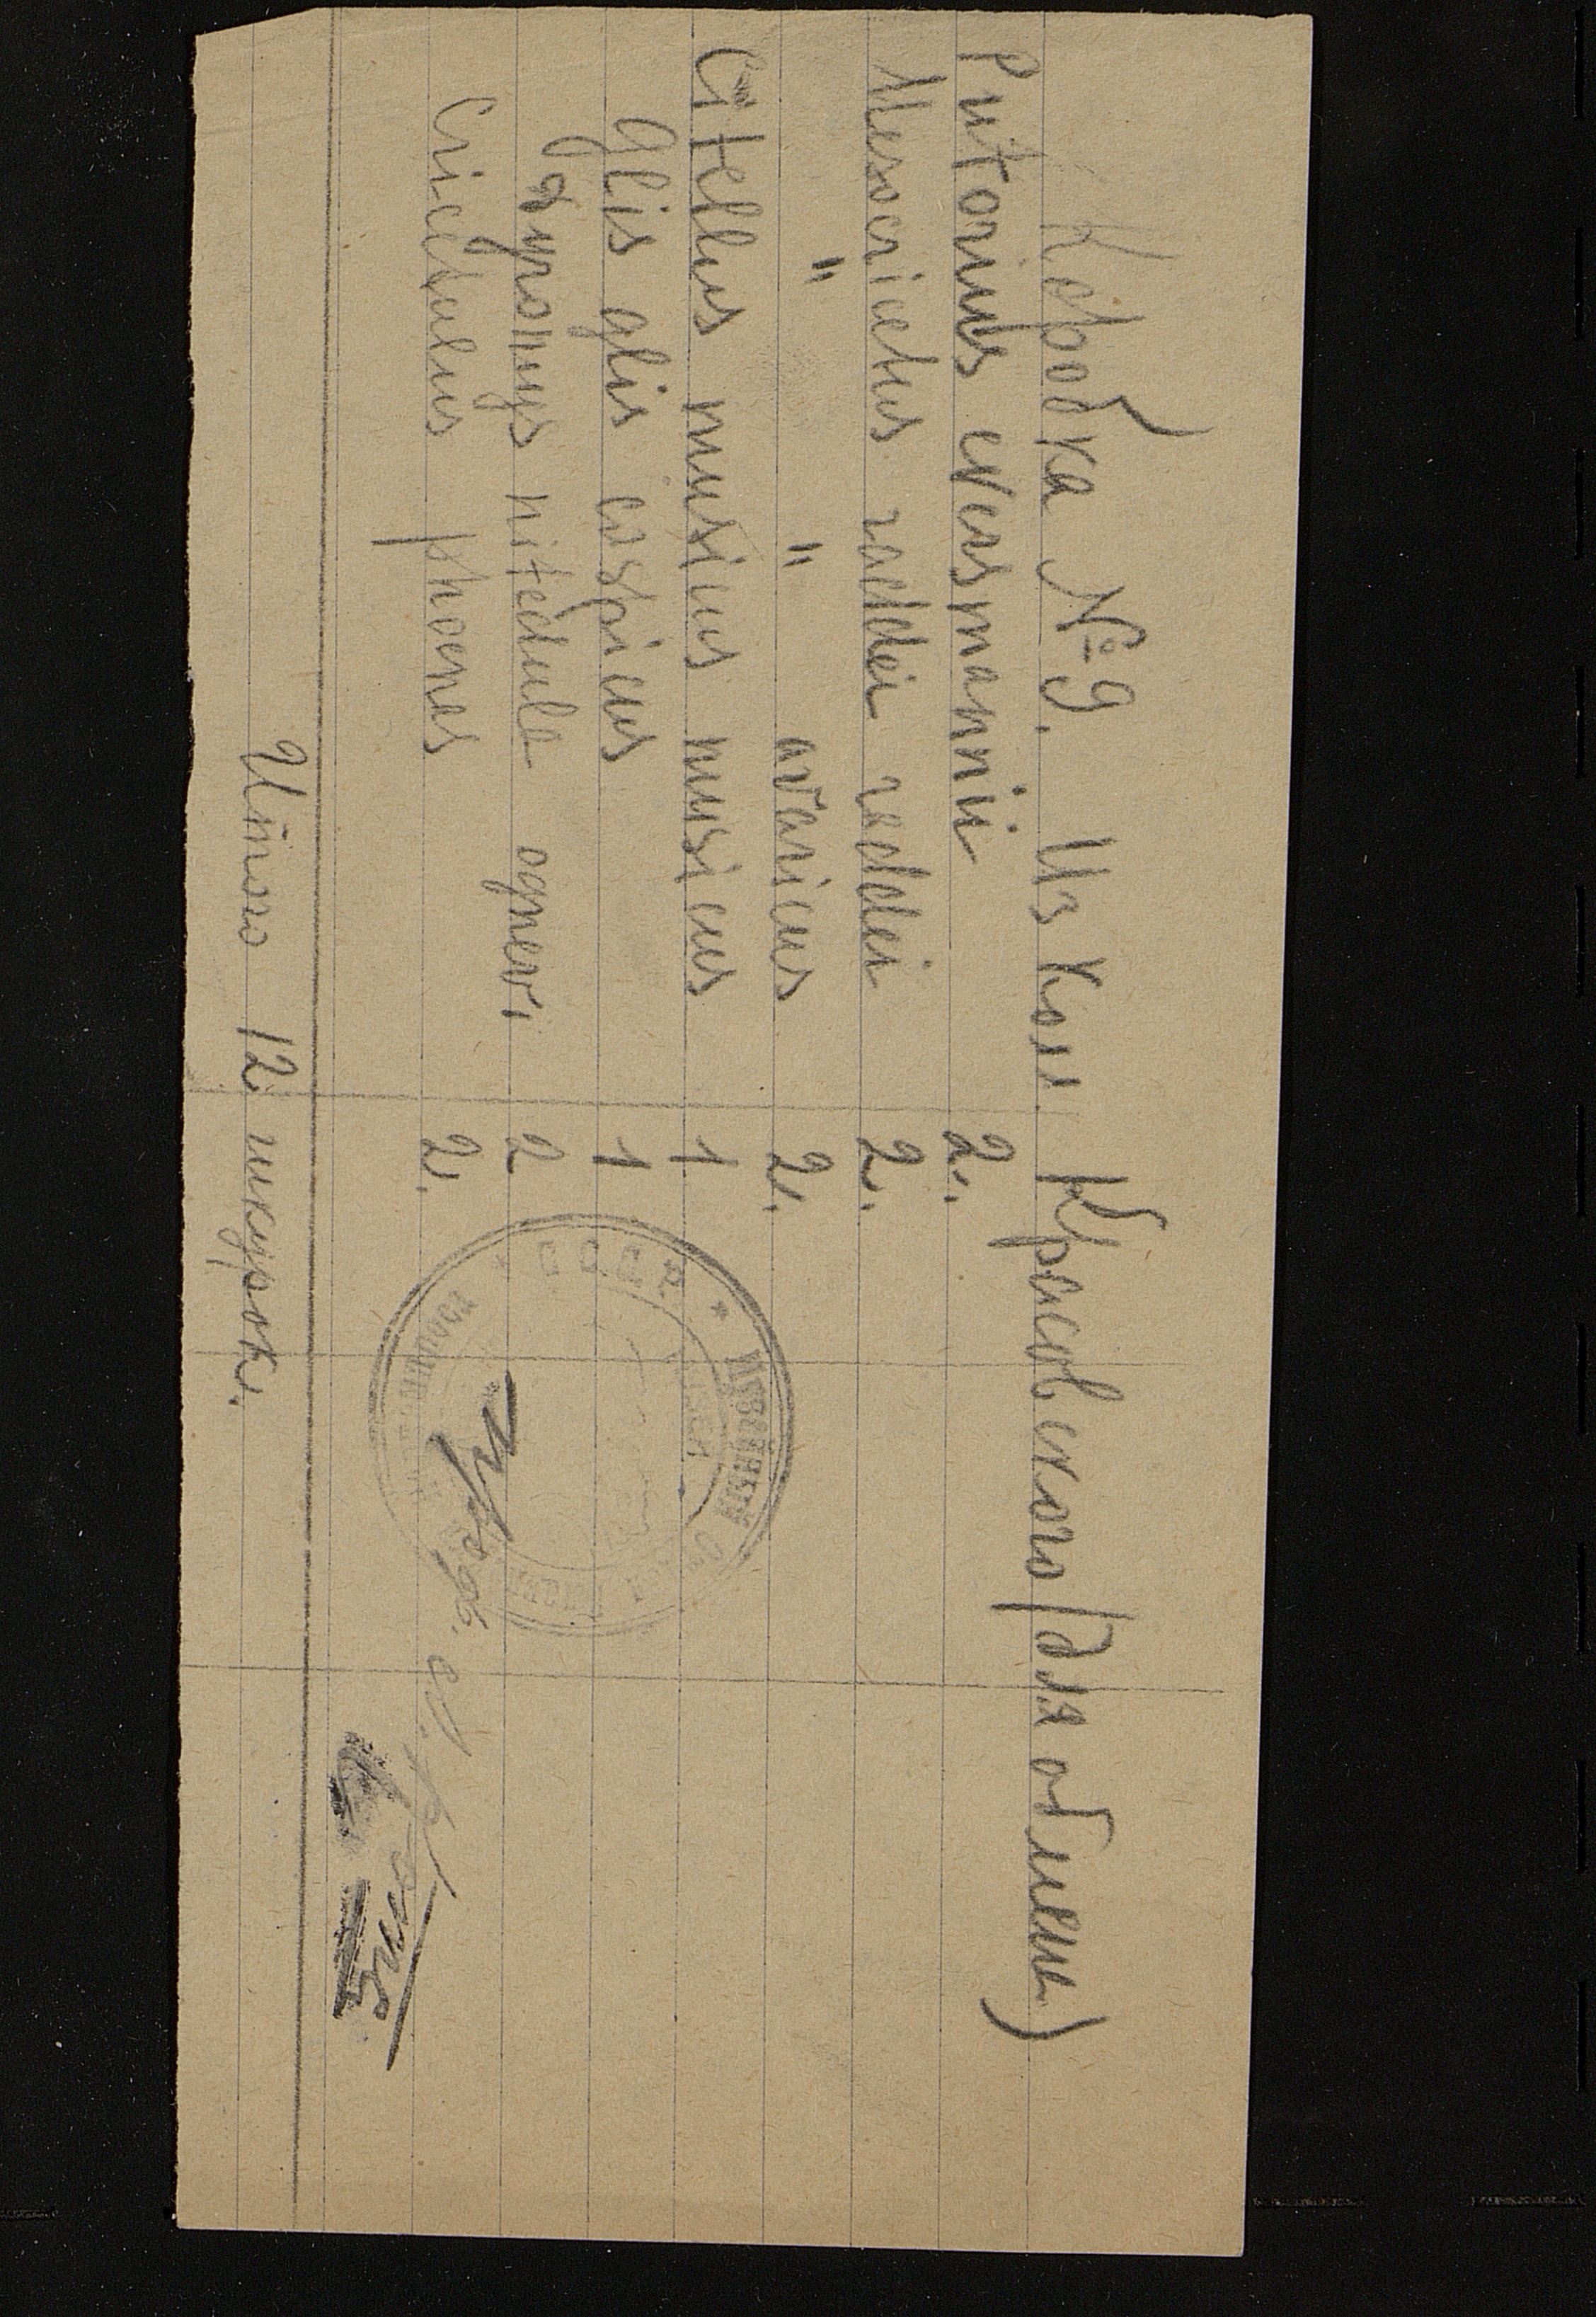 Коробка № 9. Из кол. Красовского (для обмена)
Putorius eversmanni 2.
Mesocricetus raddei raddei 2.
" " avaricus 2.
Citellus musicus musicus 1
Glis glis caspicus 1
Dyromys nitedula ognevi 2
Cricetulus phoenes 2.
* СССР *
Итого 12 шкурок.